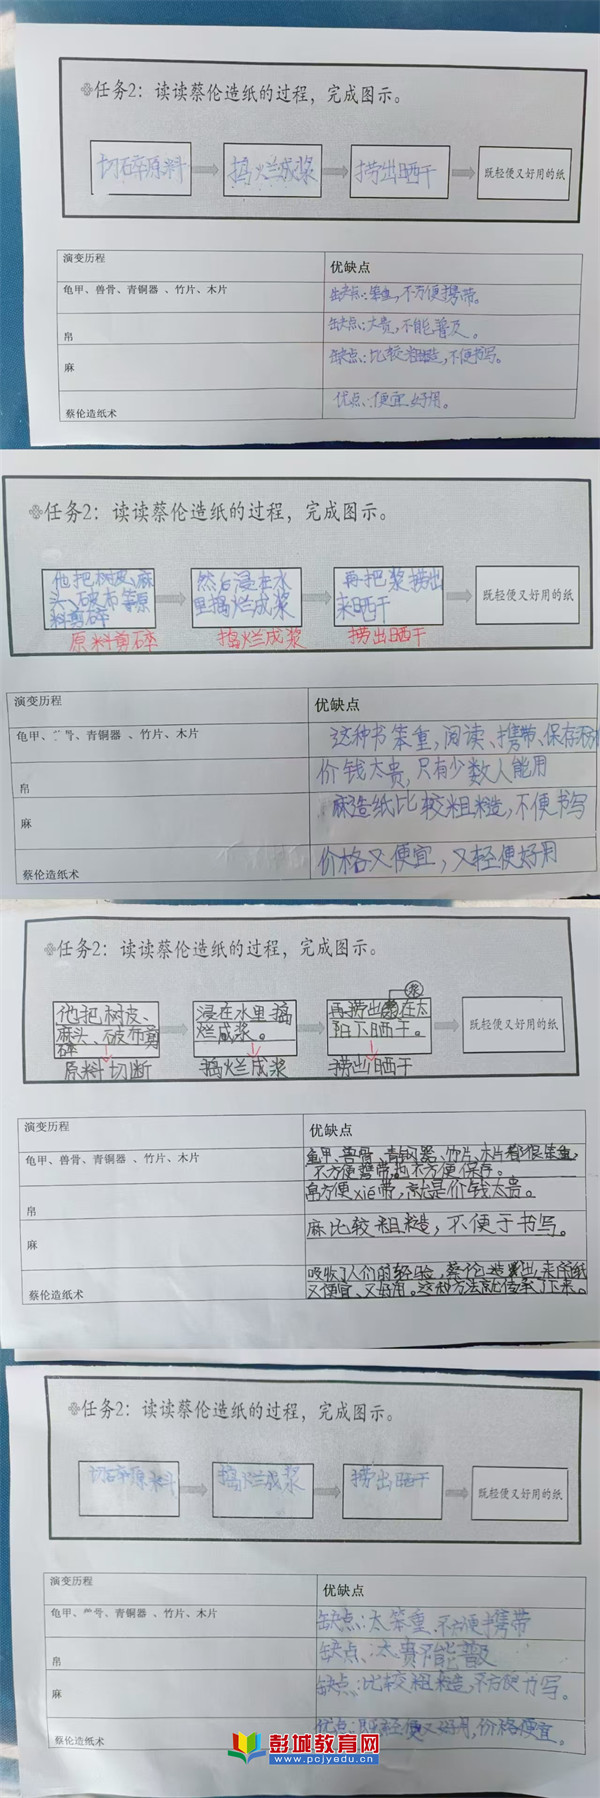 任务2：读读蔡伦造纸的过程，完成图示。
切碎原料 捣烂成浆 捞出晒干 既轻便又好用的纸
演变历程 优缺点
龟甲、兽骨、青铜器 、竹片、木片 缺点：笨重，不方便携带。
帛 缺点：太贵，不能普及。
麻 缺点：比较粗糙，不便书写。
蔡伦造纸术 优点：便宜好用。
任务2：读读蔡伦造纸的过程，完成图示。
他把树皮、麻
头、破布等原
料剪碎
然后浸在水
里捣烂成浆
再把浆捞出
来晒干
既轻便又好用的纸
原料剪碎 捣烂成浆 捞出晒干
演变历程 优缺点
龟甲、骨、青铜器 、竹片、木片 这种书笨重，阅读、携带、保存
帛 价钱太贵，只有少数人能用
麻 麻造纸比较粗糙，不便书写
蔡伦造纸术 价格又便宜，又轻便好用
任务2：读读蔡伦造纸的过程，完成图示。
他把树皮、
麻头、破布剪
碎
浸在水里捣
烂成浆。
浆
再捞出在太
阳下晒干。
既轻便又好用的纸
原料切断 捣烂成浆 捞出晒干
演变历程 优缺点
龟甲、兽骨、青铜器 、竹片、木片 龟甲、兽骨、青铜器、竹片、木片都很笨重，
不方便携带，也不方便保存。
帛 帛方便xié带，就是价钱太贵。
麻 麻比较粗糙，不便于书写。
蔡伦造纸术 吸收了人们的经验，蔡伦造出来的纸
又便宜、又好用。这种方法就传承了下来。
任务2：读读蔡伦造纸的过程，完成图示。
切碎原料 捣烂成浆 捞出晒干 既轻便又好用的纸
演变历程 优缺点
龟甲、骨、青铜器 、竹片、木片 缺点：太笨重，不方便携带
帛 缺点：太贵不能普及
麻 缺点：比较粗糙，不方便书写。
蔡伦造纸术 优点：既轻便又好用，价格便宜。
彭城教育网
www.pcjyedu.com